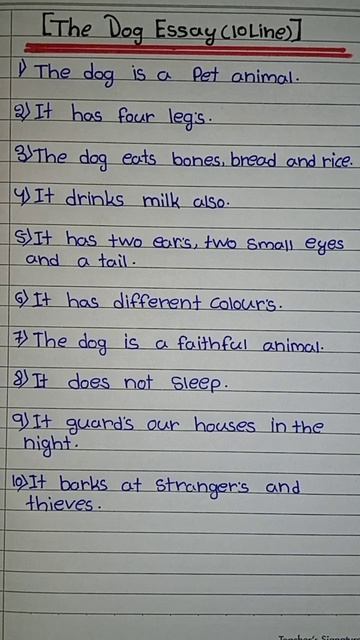 [The Dog Essay (10Line)]
1) The dog is a Pet animal.
2) It has four leg's.
3) The dog eats bones, bread and rice.
4) It drinks milk also.
5) It has two ear's, two small eyes
and a tail.
6) It has different colour's.
7) The dog is a faithful animal.
8) It does not sleep.
9) It guard's our houses in the
night.
10) It barks at stranger's and
thieves.
Teacher's Signature